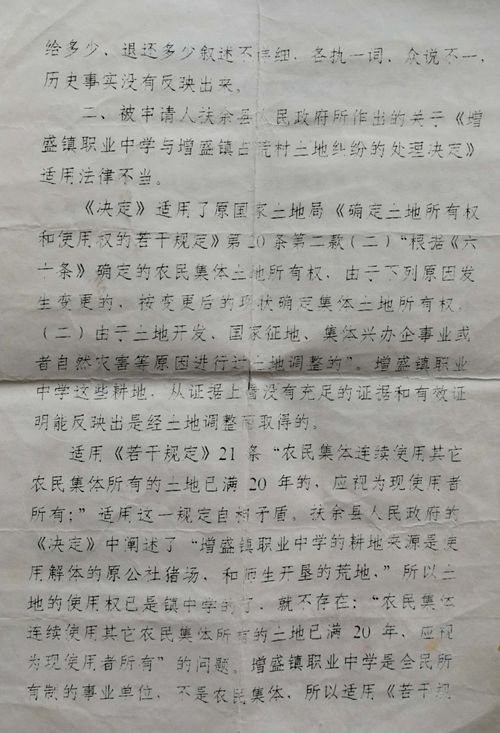 给多少、退还多少叙述不详细，各执一词，众说不一，
历史事实没有反映出来。
二、被申请人扶余县人民政府所作出的关于《增
盛镇职业中学与增盛镇占荒村土地纠纷的处理决定》
适用法律不当。
《决定》适用了原国家土地局《确定土地所有权
和使用权的若干规定》第20条第二款（二）“根据《六
十条》确定的农民集体土地所有权，由于下列原因发
生变更的，按变更后的现状确定集体土地所有权。
（二）由于土地开发、国家征地、集体兴办企事业或
者自然灾害等原因进行过土地调整的”。增盛镇职业
中学这些耕地，从证据上看没有充足的证据和有效证
明能反映出是经土地调整而取得的。
适用《若干规定》21条“农民集体连续使用其它
农民集体所有的土地已满20年的，应视为现使用者
所有；”适用这一规定自相矛盾。扶余县人民政府的
《决定》中阐述了“增盛镇职业中学的耕地来源是使
用解体的原公社猪场，和师生开垦的荒地，”所以土
地的使用权已是镇中学的了，就不存在：“农民集体
连续使用其它农民集体所有的土地已满20年，应视
为现使用者所有”的问题。增盛镇职业中学是全民所
有制的事业单位，不是农民集体，所以适用《若干规